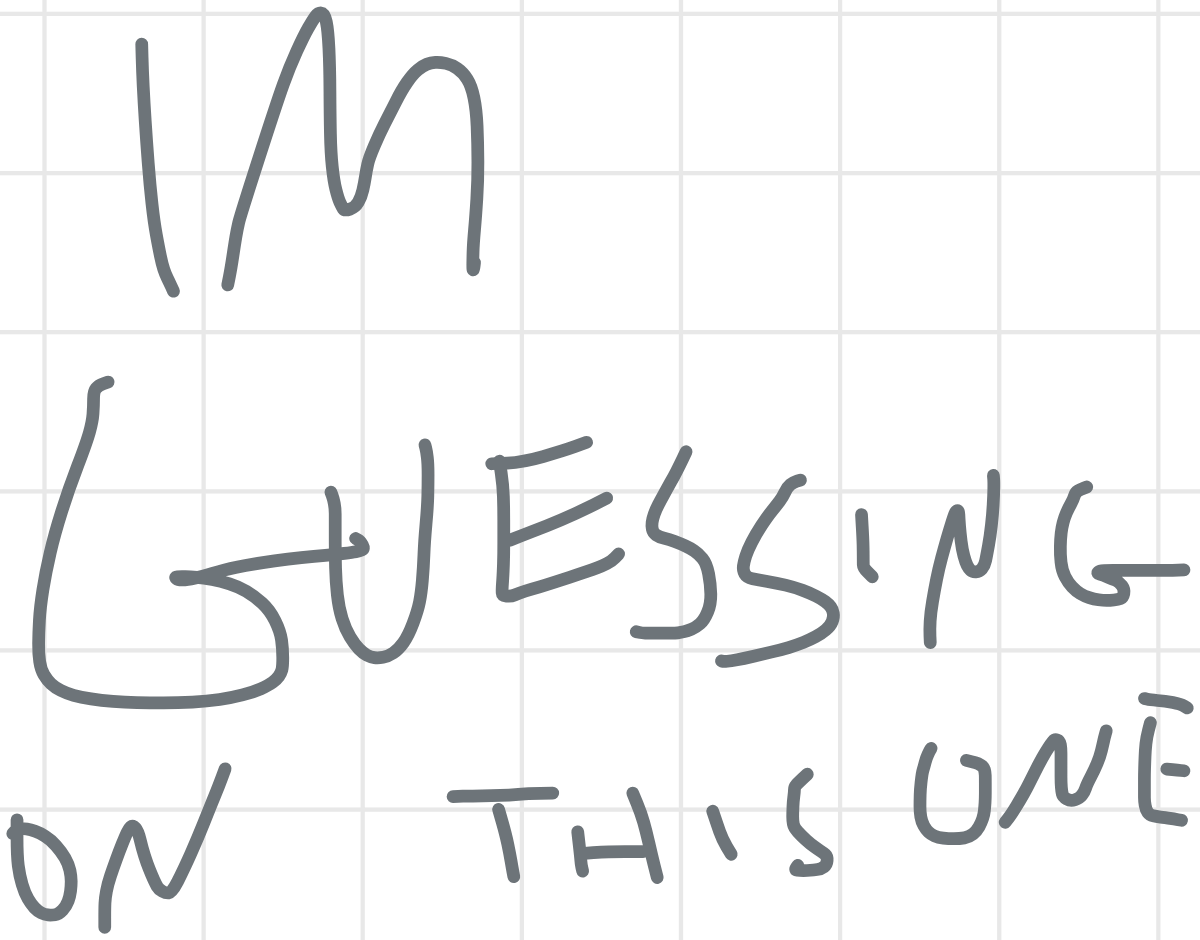 IM
GUESSING
ON THIS ONE